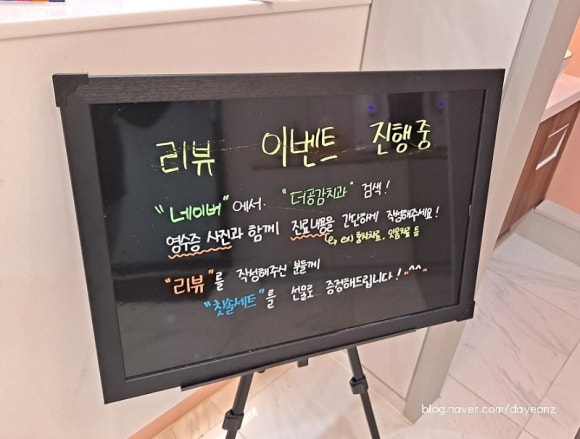 리뷰 이벤트 진행중
"네이버"에서 "더공감치과" 검색!
영수증 사진과 함께 진료내용을 간단하게 작성해주세요!
ex) 충치치료, 잇몸치료 등
"리뷰"를 작성해주신 분들께
"칫솔세트"를 선물로 증정해드립니다! "^^"
blog.naver.com/dayeonz